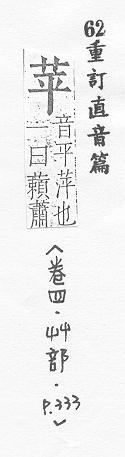 62重訂直音篇
苹
音平萍也
一曰藾蕭
〈卷四·艸部·P.333〉